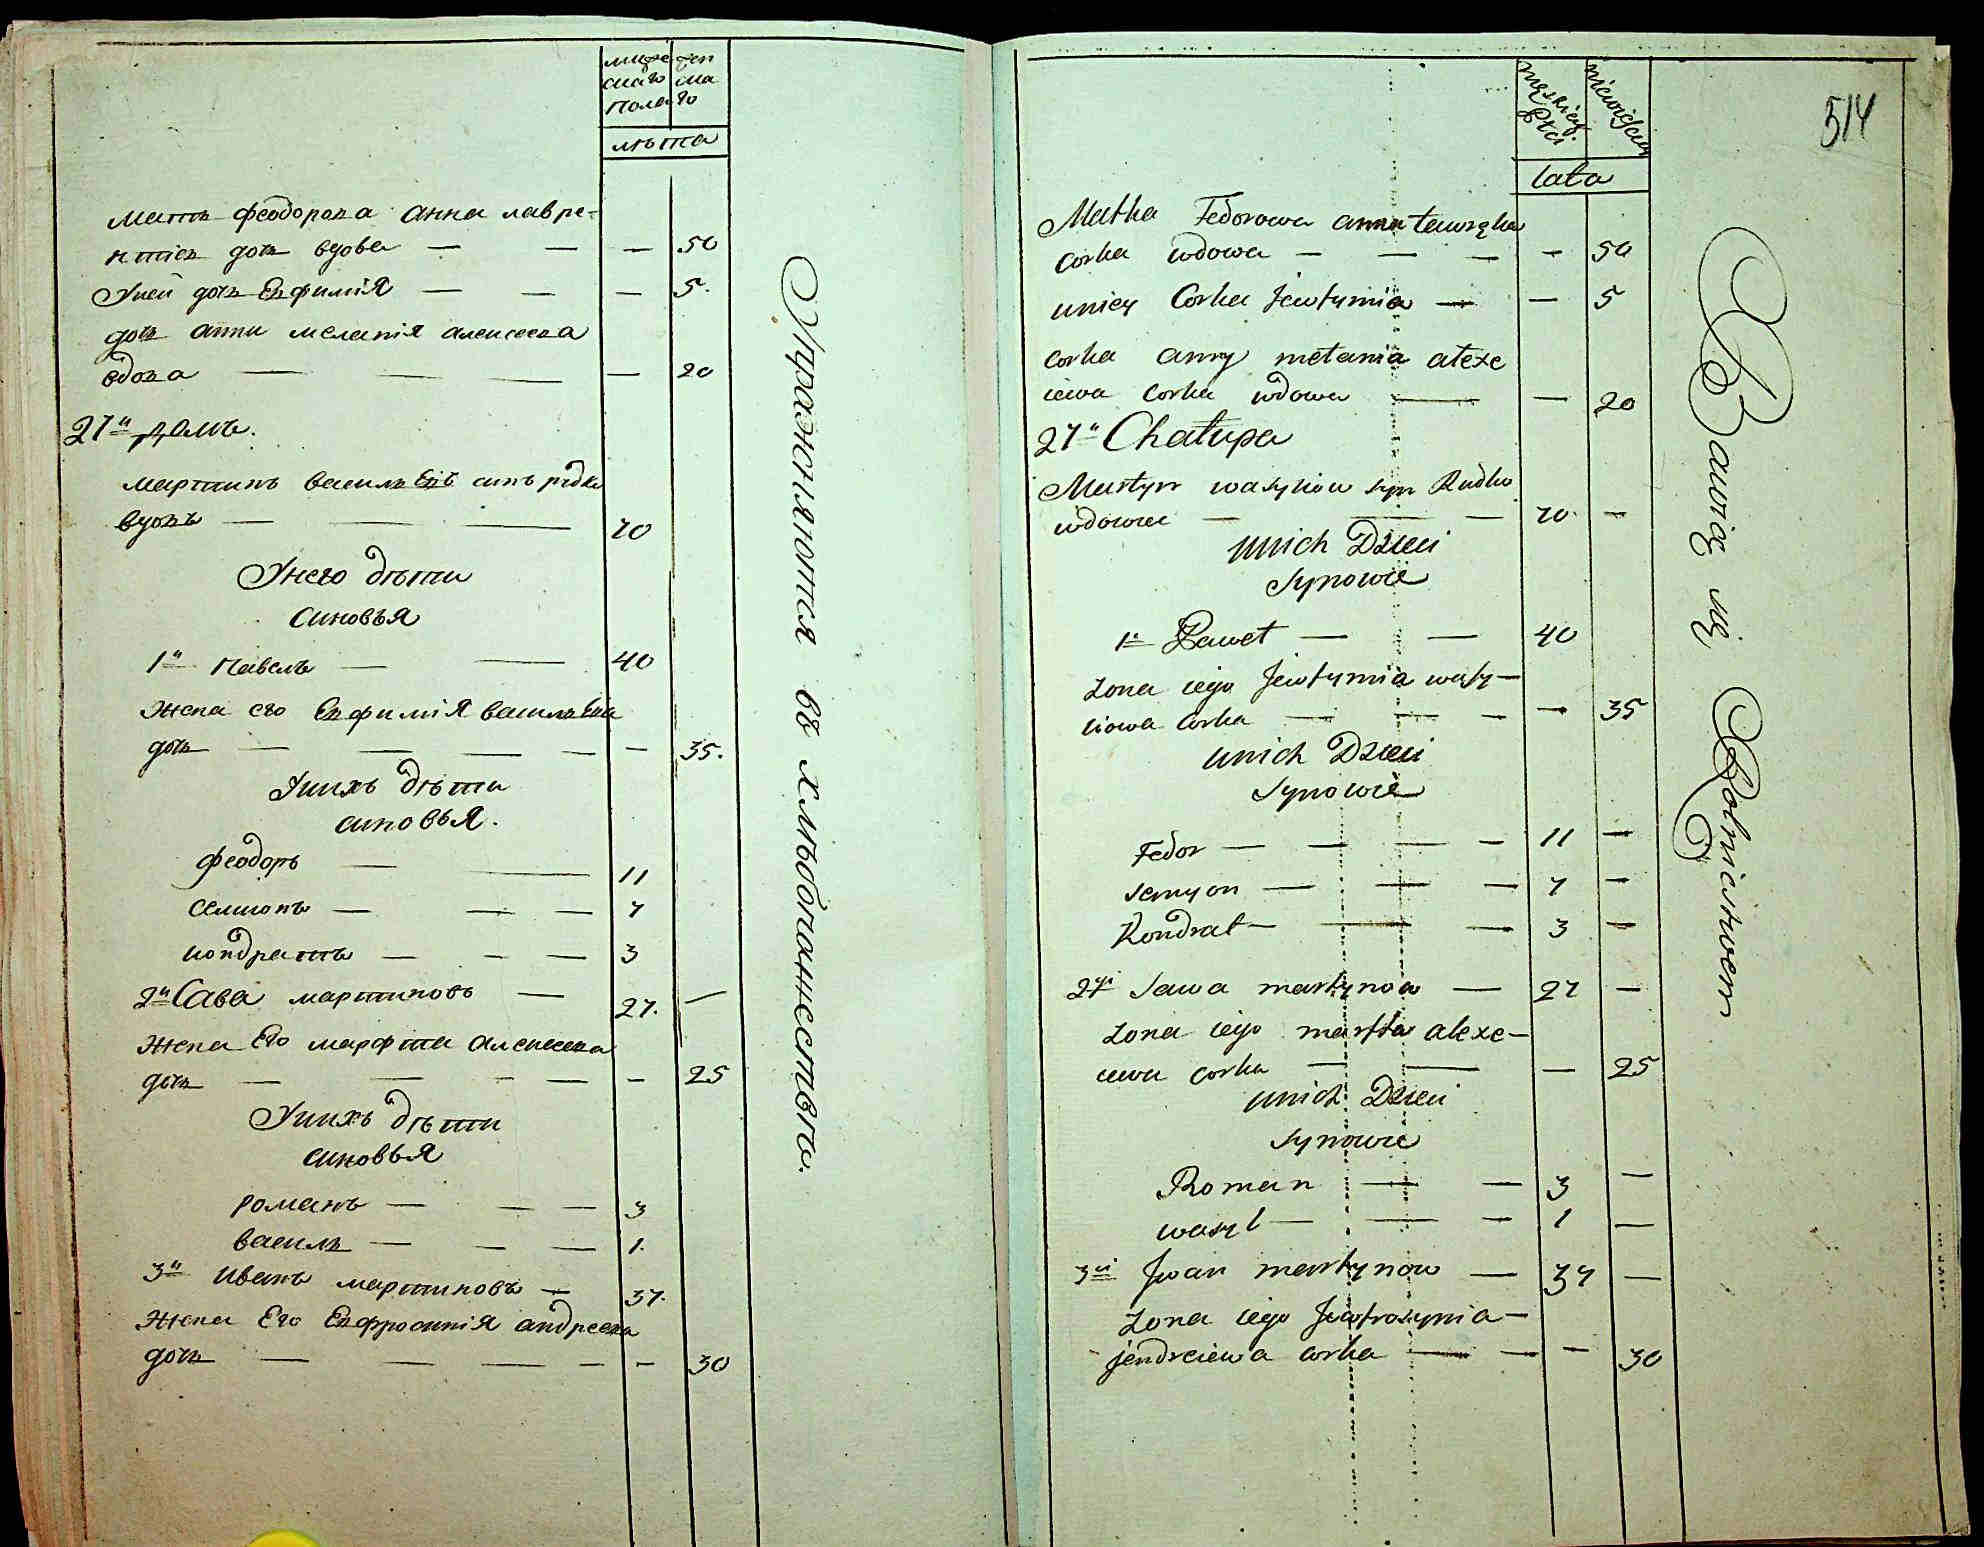 мужескаго пола
женскаго
лѣта
мать феодорова анна лавре-
нтіева дочь вдова — — — 50
Уней дочь Евфимія — — — 5.
дочь анни меланія алексеева
вдова — — — — 20
27й домъ.
мартинъ васильевъ синъ рудко
вдовъ — — — 70
Унего дѣти
синовья
1й павелъ — — 40
жена его Евфимія васильева
дочь — — — — — 35.
Унихъ дѣти
синовья.
феодоръ — — 11
семионъ — — — 7
кондратъ — — — 3
2й Сава мартиновъ — 27. —
жена Его марфта алексеева
дочь — — — — — 25
Унихъ дѣти
синовья
романъ — — — 3
василь — — — 1.
3й иванъ мартиновъ — 37.
жена Его Евфросинія андреева
дочь — — — — — 30
Упражняются въ хлѣбопашествѣ.
514
męskiey płci
niewieściey
lata
Matka Fedorowa anna
corka wdowa — — — — 50
uniey Corka Jewfymia — — 5
corka anny mełania ałexe
iewa Corka wdowa — — 20
27a Chałupa
Martyn wasyliow syn Rudko
wdowiec — — — 70 —
unich Dzieci
synowie
1й Paweł — — 40
żona iego Jewfymia wasy—
liowa Corka — — — — 35
unich Dzieci
synowie
Fedor — — — — 11 —
semyon — — — 7 —
Kondrat — — — 3 —
2gi sawa martynow — 27 —
żona iego marfta alexe—
iewa corka — — — 25
unich Dzieci
synowie
Roman — — 3 —
wasyl — — — 1 —
3ci Jwan martynow — 37 —
żona iego Jewfrosynia —
jendreiewa corka — — — 30
Bawią się Rolnictwem